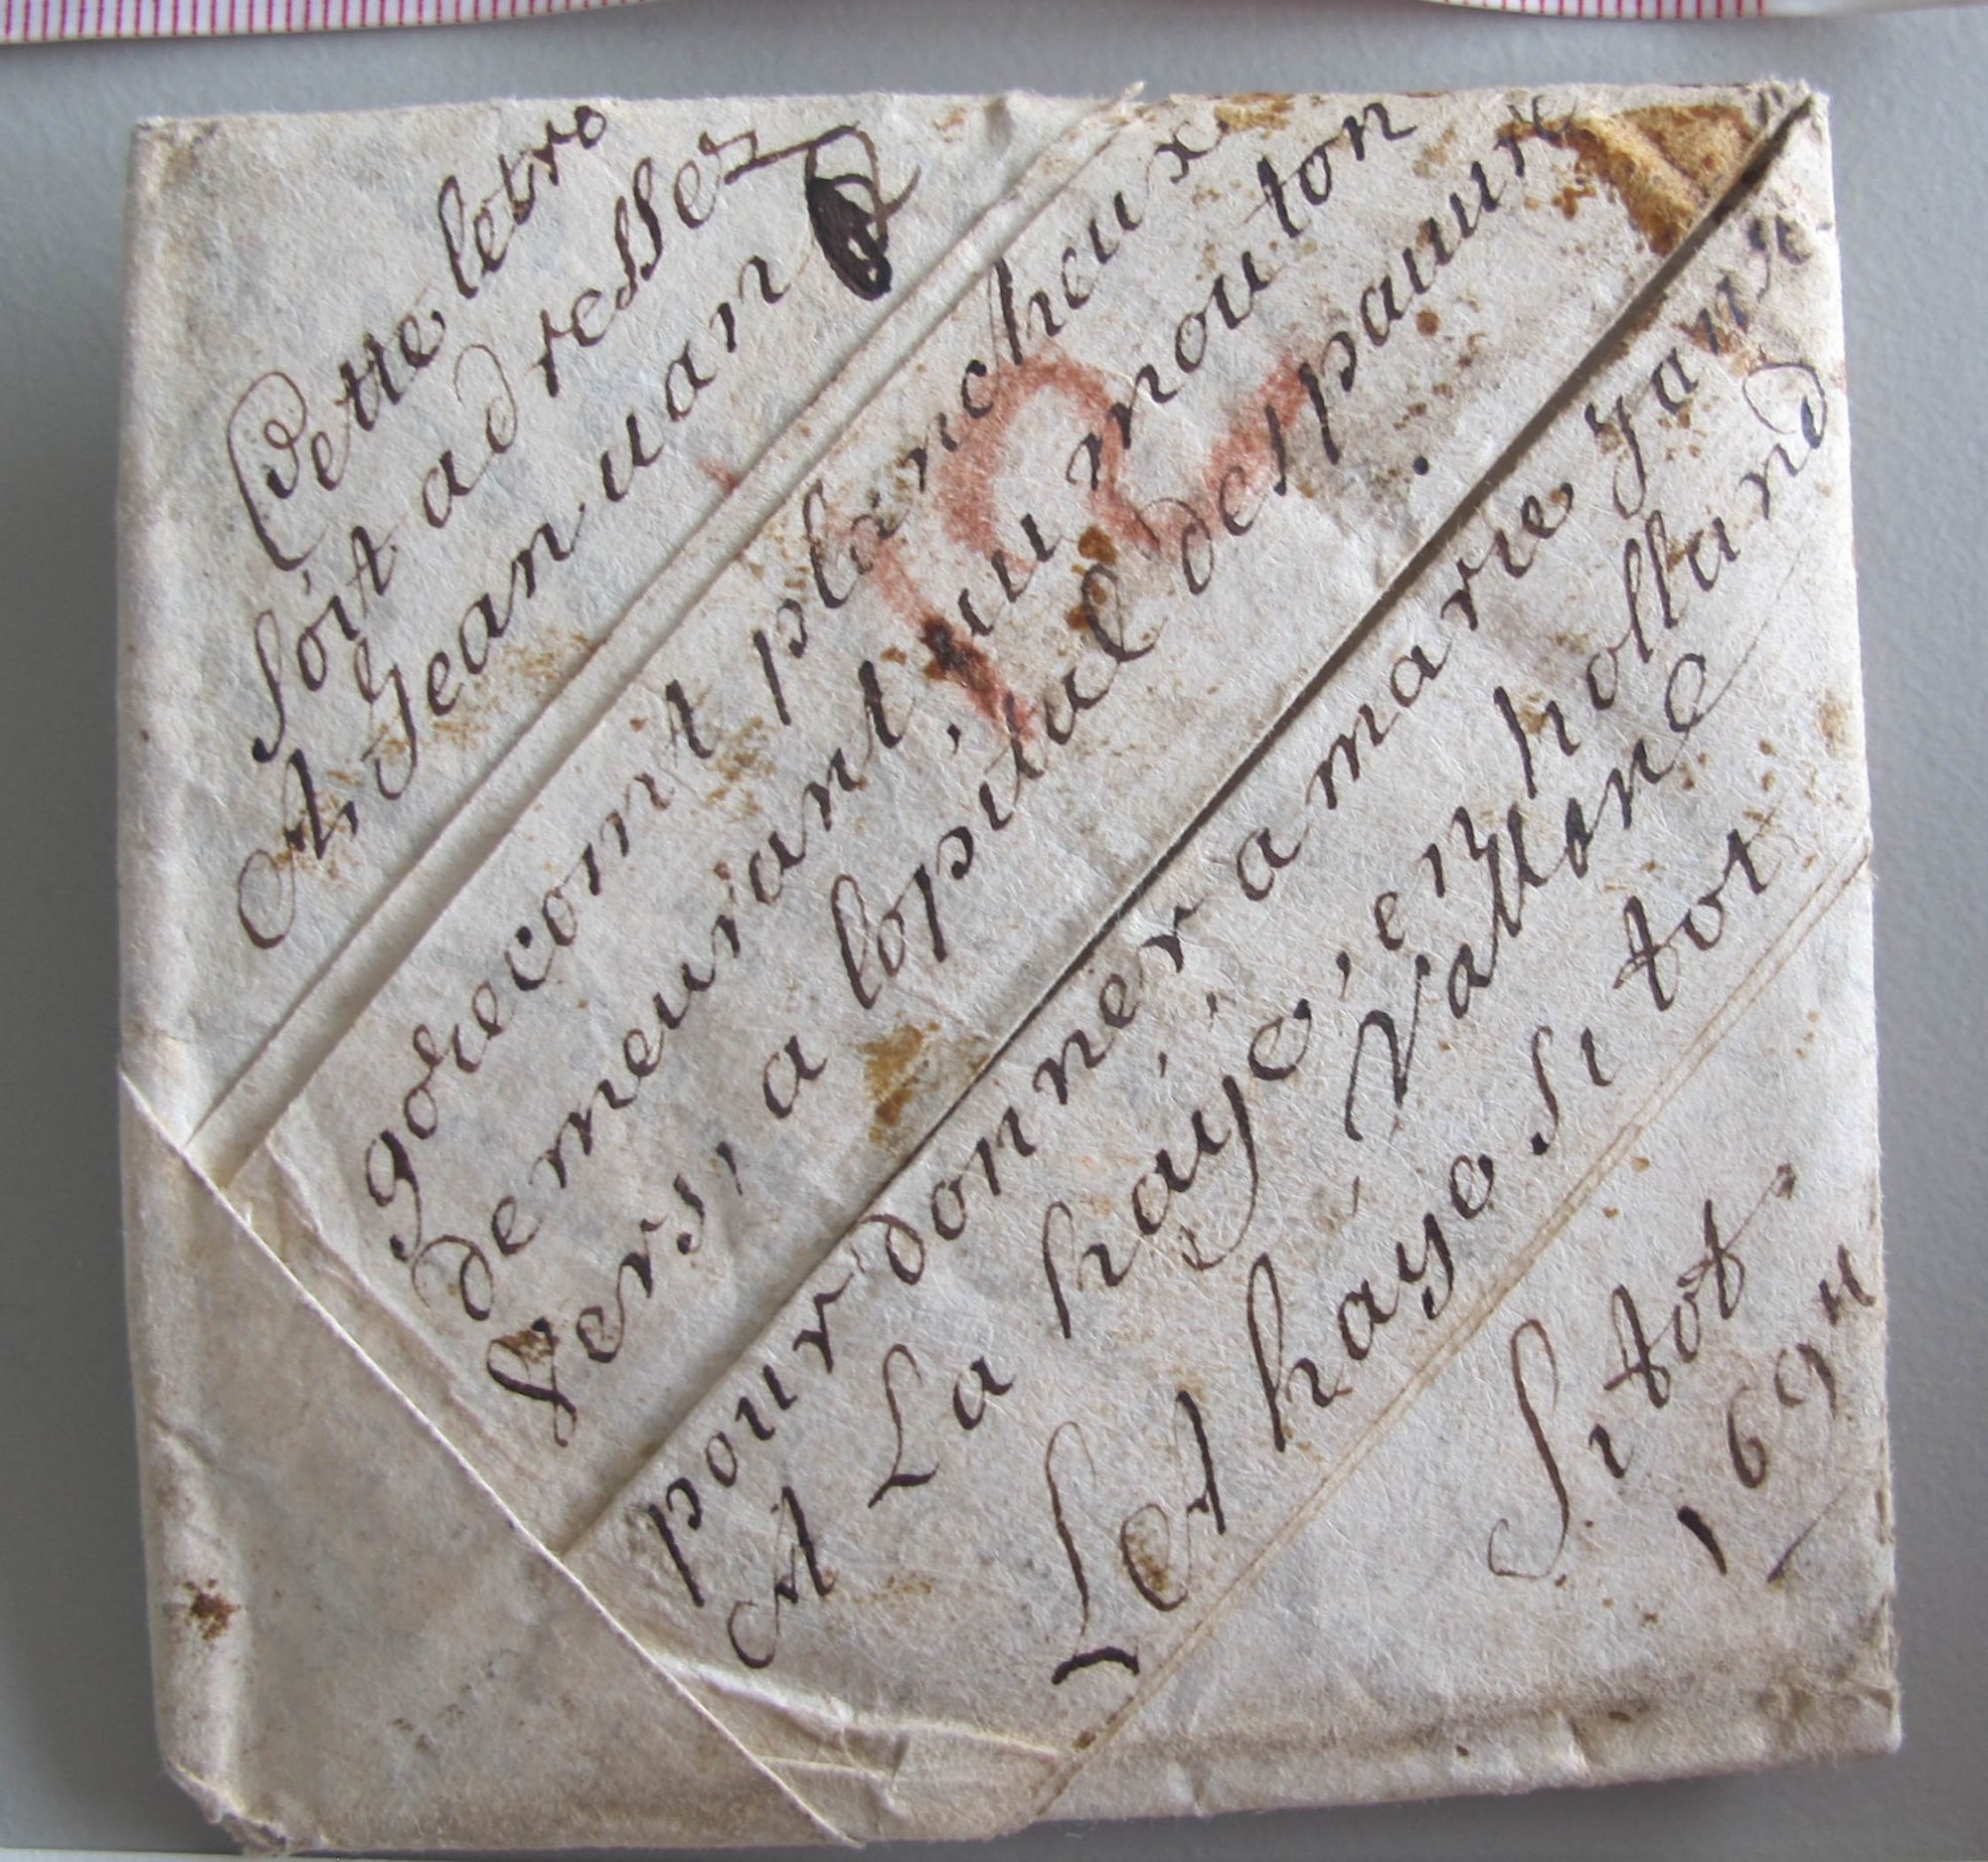 Cette letre
soit adressez
A Jean uan
godecont plancheux
demeurant, au mouton
vers, a lopital des pauure
pour donner a marie yans
A La haye, en holland
Vallone
Let haye si tot
Si tot
169